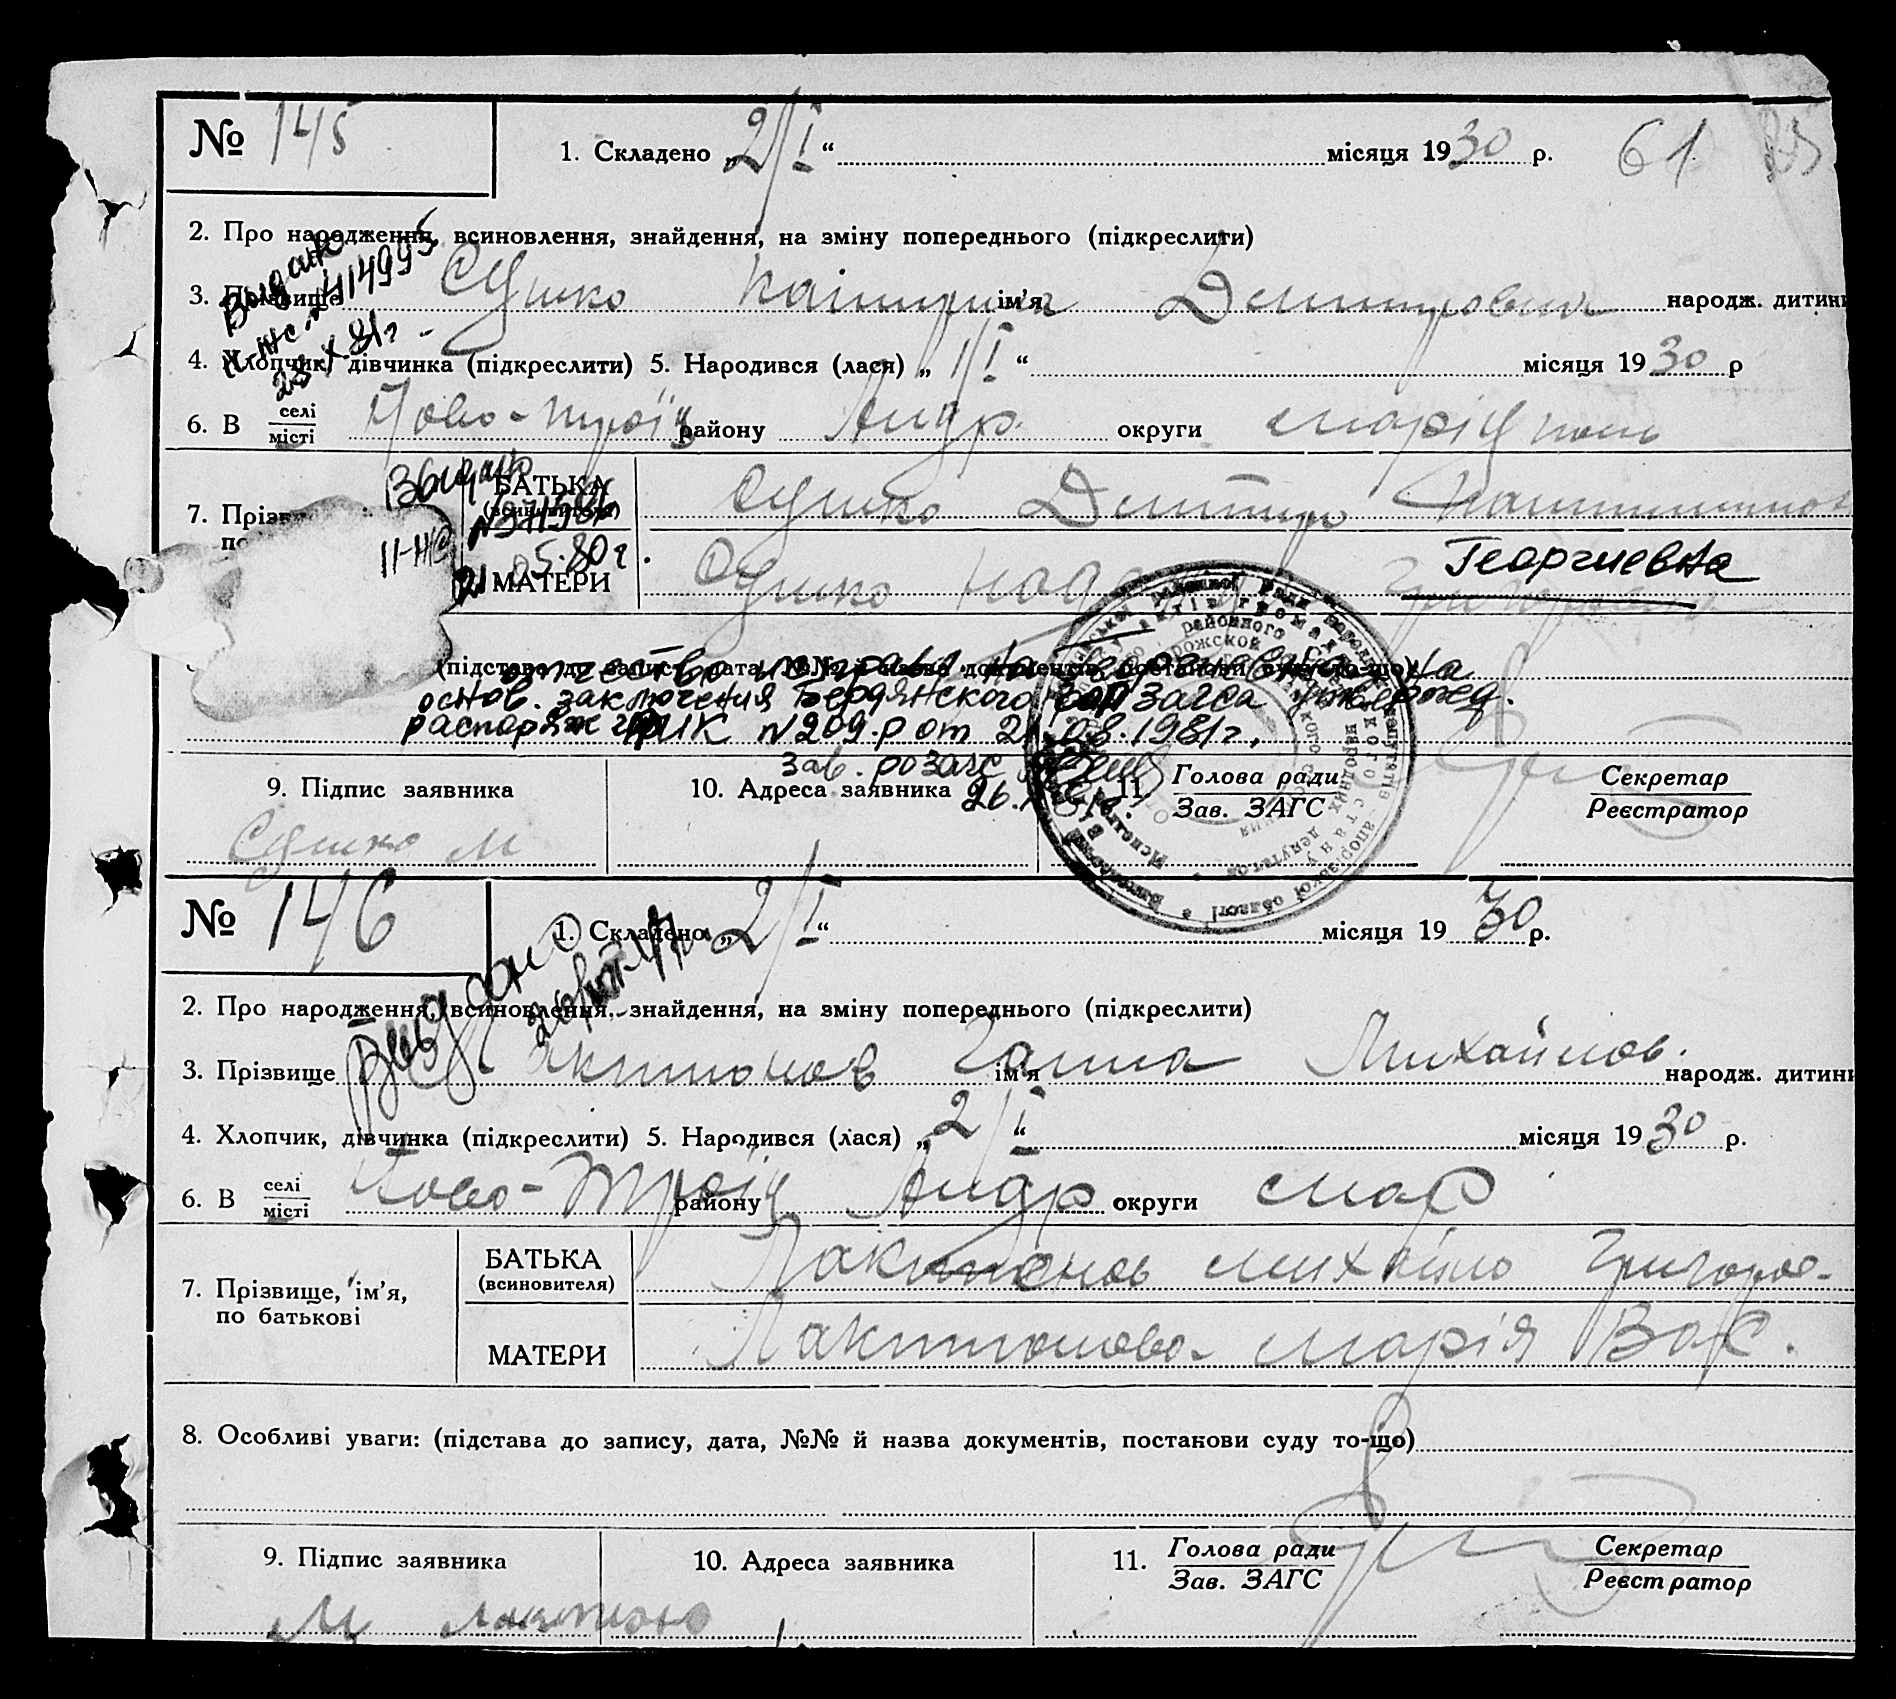 № 145
1. Складено „ 2/I “ місяця 1930 р. 61
2. Про народження, всиновлення, знайдення, на зміну попереднього (підкреслити)
Видано
414995
28.X.81г.
3. Прізвище Сушко ім'я Дмитровна народж. дитини
4. Хлопчик, дівчинка (підкреслити) 5. Народився (лася) „ 1/I “ місяця 1930 р
6. В селі/місті Ново-Троїц району Андр. округи Маріупол
Выдано
II-ЖС
05.80г.
7. БАТЬКА (всиновителя) Сушко Дмитро
МАТЕРИ Сушко Георгиевна
(підстава до запису, дата, №№ й назва документів, постанови суду то-що)
отчество на
основ. заключения Бердянского ЗАГСа
распоряж №209-р от 21.08.1981г.
зав.
9. Підпис заявника 10. Адреса заявника 26. 11. Голова ради/Зав. ЗАГС Секретар/Реєстратор
Сушко М
№ 146
1. Складено „ 2/I “ місяця 1930 р.
2. Про народження, всиновлення, знайдення, на зміну попереднього (підкреслити)
3. Прізвище Лактионов ім'я Ганна Михайлов. народж. дитини
4. Хлопчик, дівчинка (підкреслити) 5. Народився (лася) „ 2/I “ місяця 1930 р.
6. В селі/місті Ново-Троїц району Андр округи Мар
7. Прізвище, ім'я, по батькові
БАТЬКА (всиновителя) Лактионов Михайло Григоров-
МАТЕРИ Лактионова Марія Вас.
8. Особливі уваги: (підстава до запису, дата, №№ й назва документів, постанови суду то-що)
9. Підпис заявника 10. Адреса заявника 11. Голова ради/Зав. ЗАГС Секретар/Реєстратор
М Лактионо